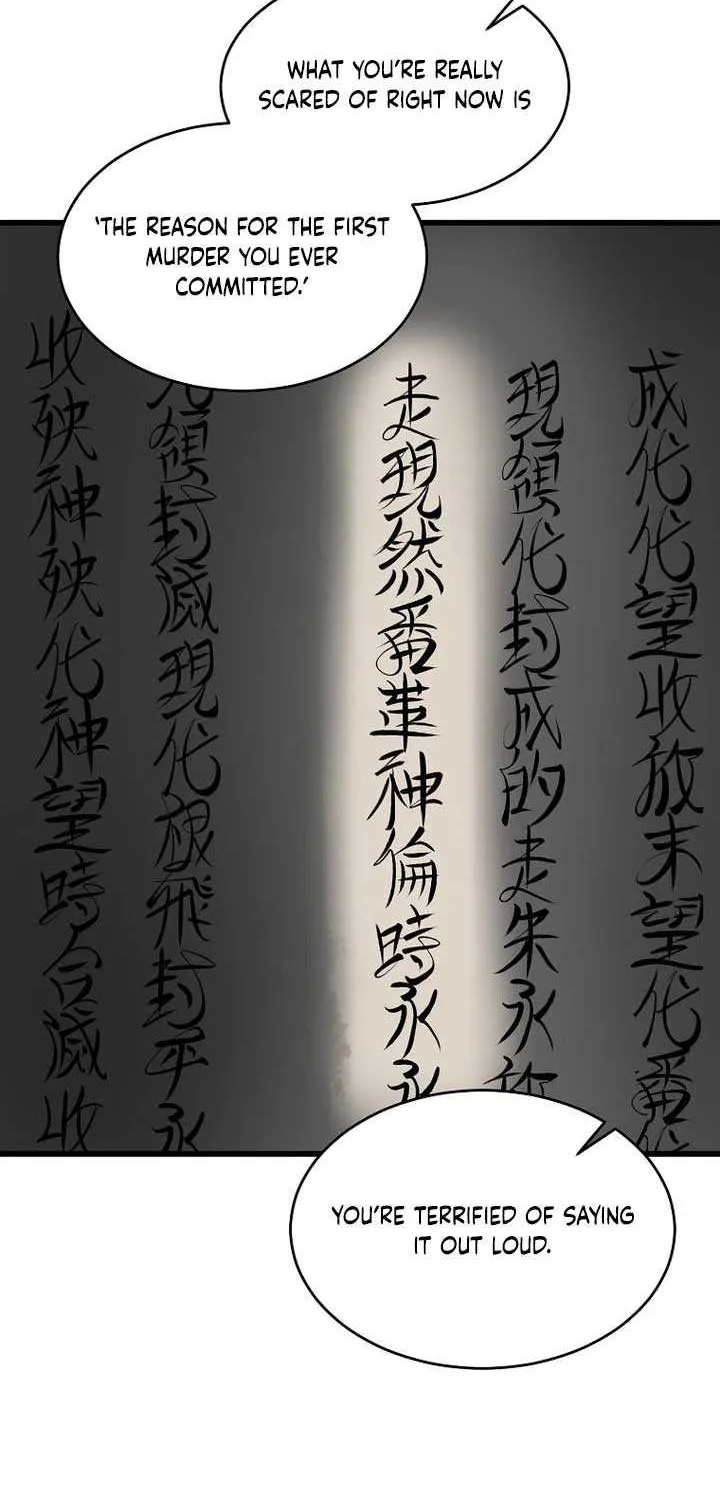 WHAT YOU'RE REALLY
SCARED OF RIGHT NOW IS
'THE REASON FOR THE FIRST
MURDER YOU EVER
COMMITTED.'
成代代望收放末望代番
現領代封成的走朱永
走現然番革神倫時永永
領封滅現代根飛封平永
收殃神殃代神望時合滅收
YOU'RE TERRIFIED OF SAYING
IT OUT LOUD.